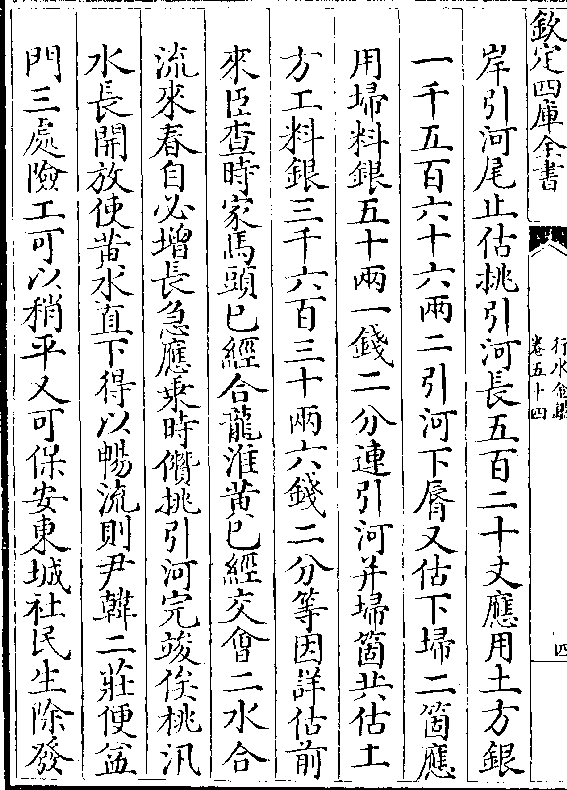 欽定四庫全書
行水金鑑
卷五十四
四
岸引河尾止估挑引河長五百二十丈應用土方銀
一千五百六十六兩二引河下脣又估下埽二箇應
用埽料銀五十兩一錢二分連引河并埽箇共估土
方工料銀三千六百三十兩六錢二分等因詳估前
來臣查時家馬頭已經合龍淮黄已經交會二水合
流來春自必增長急應乘時儧挑引河完竣俟桃汛
水長開放使黄水直下得以暢流則尹韓二莊便益
門三處險工可以稍平又可保安東城社民生除發